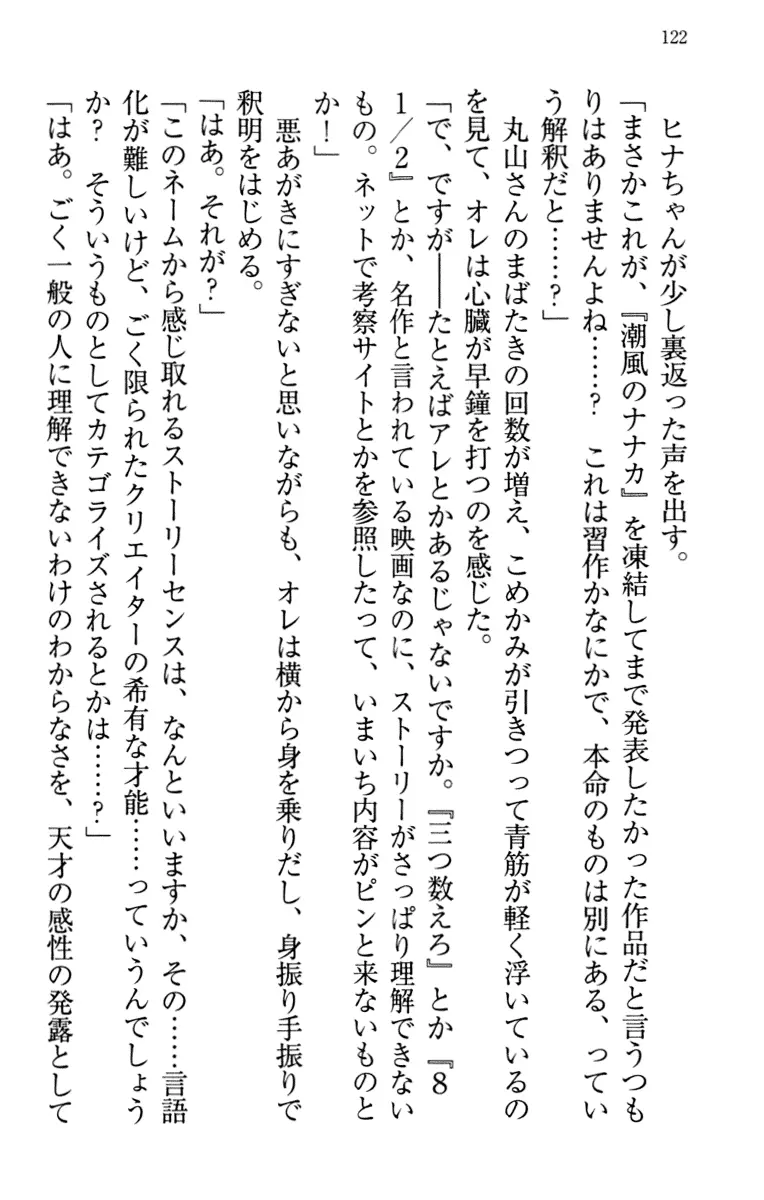 122
ヒナちゃんが少し裏返った声を出す。
「まさかこれが、『潮風のナナカ』を凍結してまで発表したかった作品だと言うつも
りはありませんよね……？　これは習作かなにかで、本命のものは別にある、ってい
う解釈だと……？」
丸山さんのまばたきの回数が増え、こめかみが引きつって青筋が軽く浮いているの
を見て、オレは心臓が早鐘を打つのを感じた。
「で、ですが――たとえばアレとかあるじゃないですか。『三つ数えろ』とか『8
1/2』とか、名作と言われている映画なのに、ストーリーがさっぱり理解できない
もの。ネットで考察サイトとかを参照したって、いまいち内容がピンと来ないものと
か！」
悪あがきにすぎないと思いながらも、オレは横から身を乗りだし、身振り手振りで
釈明をはじめる。
「はあ。それが？」
「このネームから感じ取れるストーリーセンスは、なんといいますか、その……言語
化が難しいけど、ごく限られたクリエイターの希有な才能……っていうんでしょう
か？　そういうものとしてカテゴライズされるとかは……？」
「はあ。ごく一般の人に理解できないわけのわからなさを、天才の感性の発露として